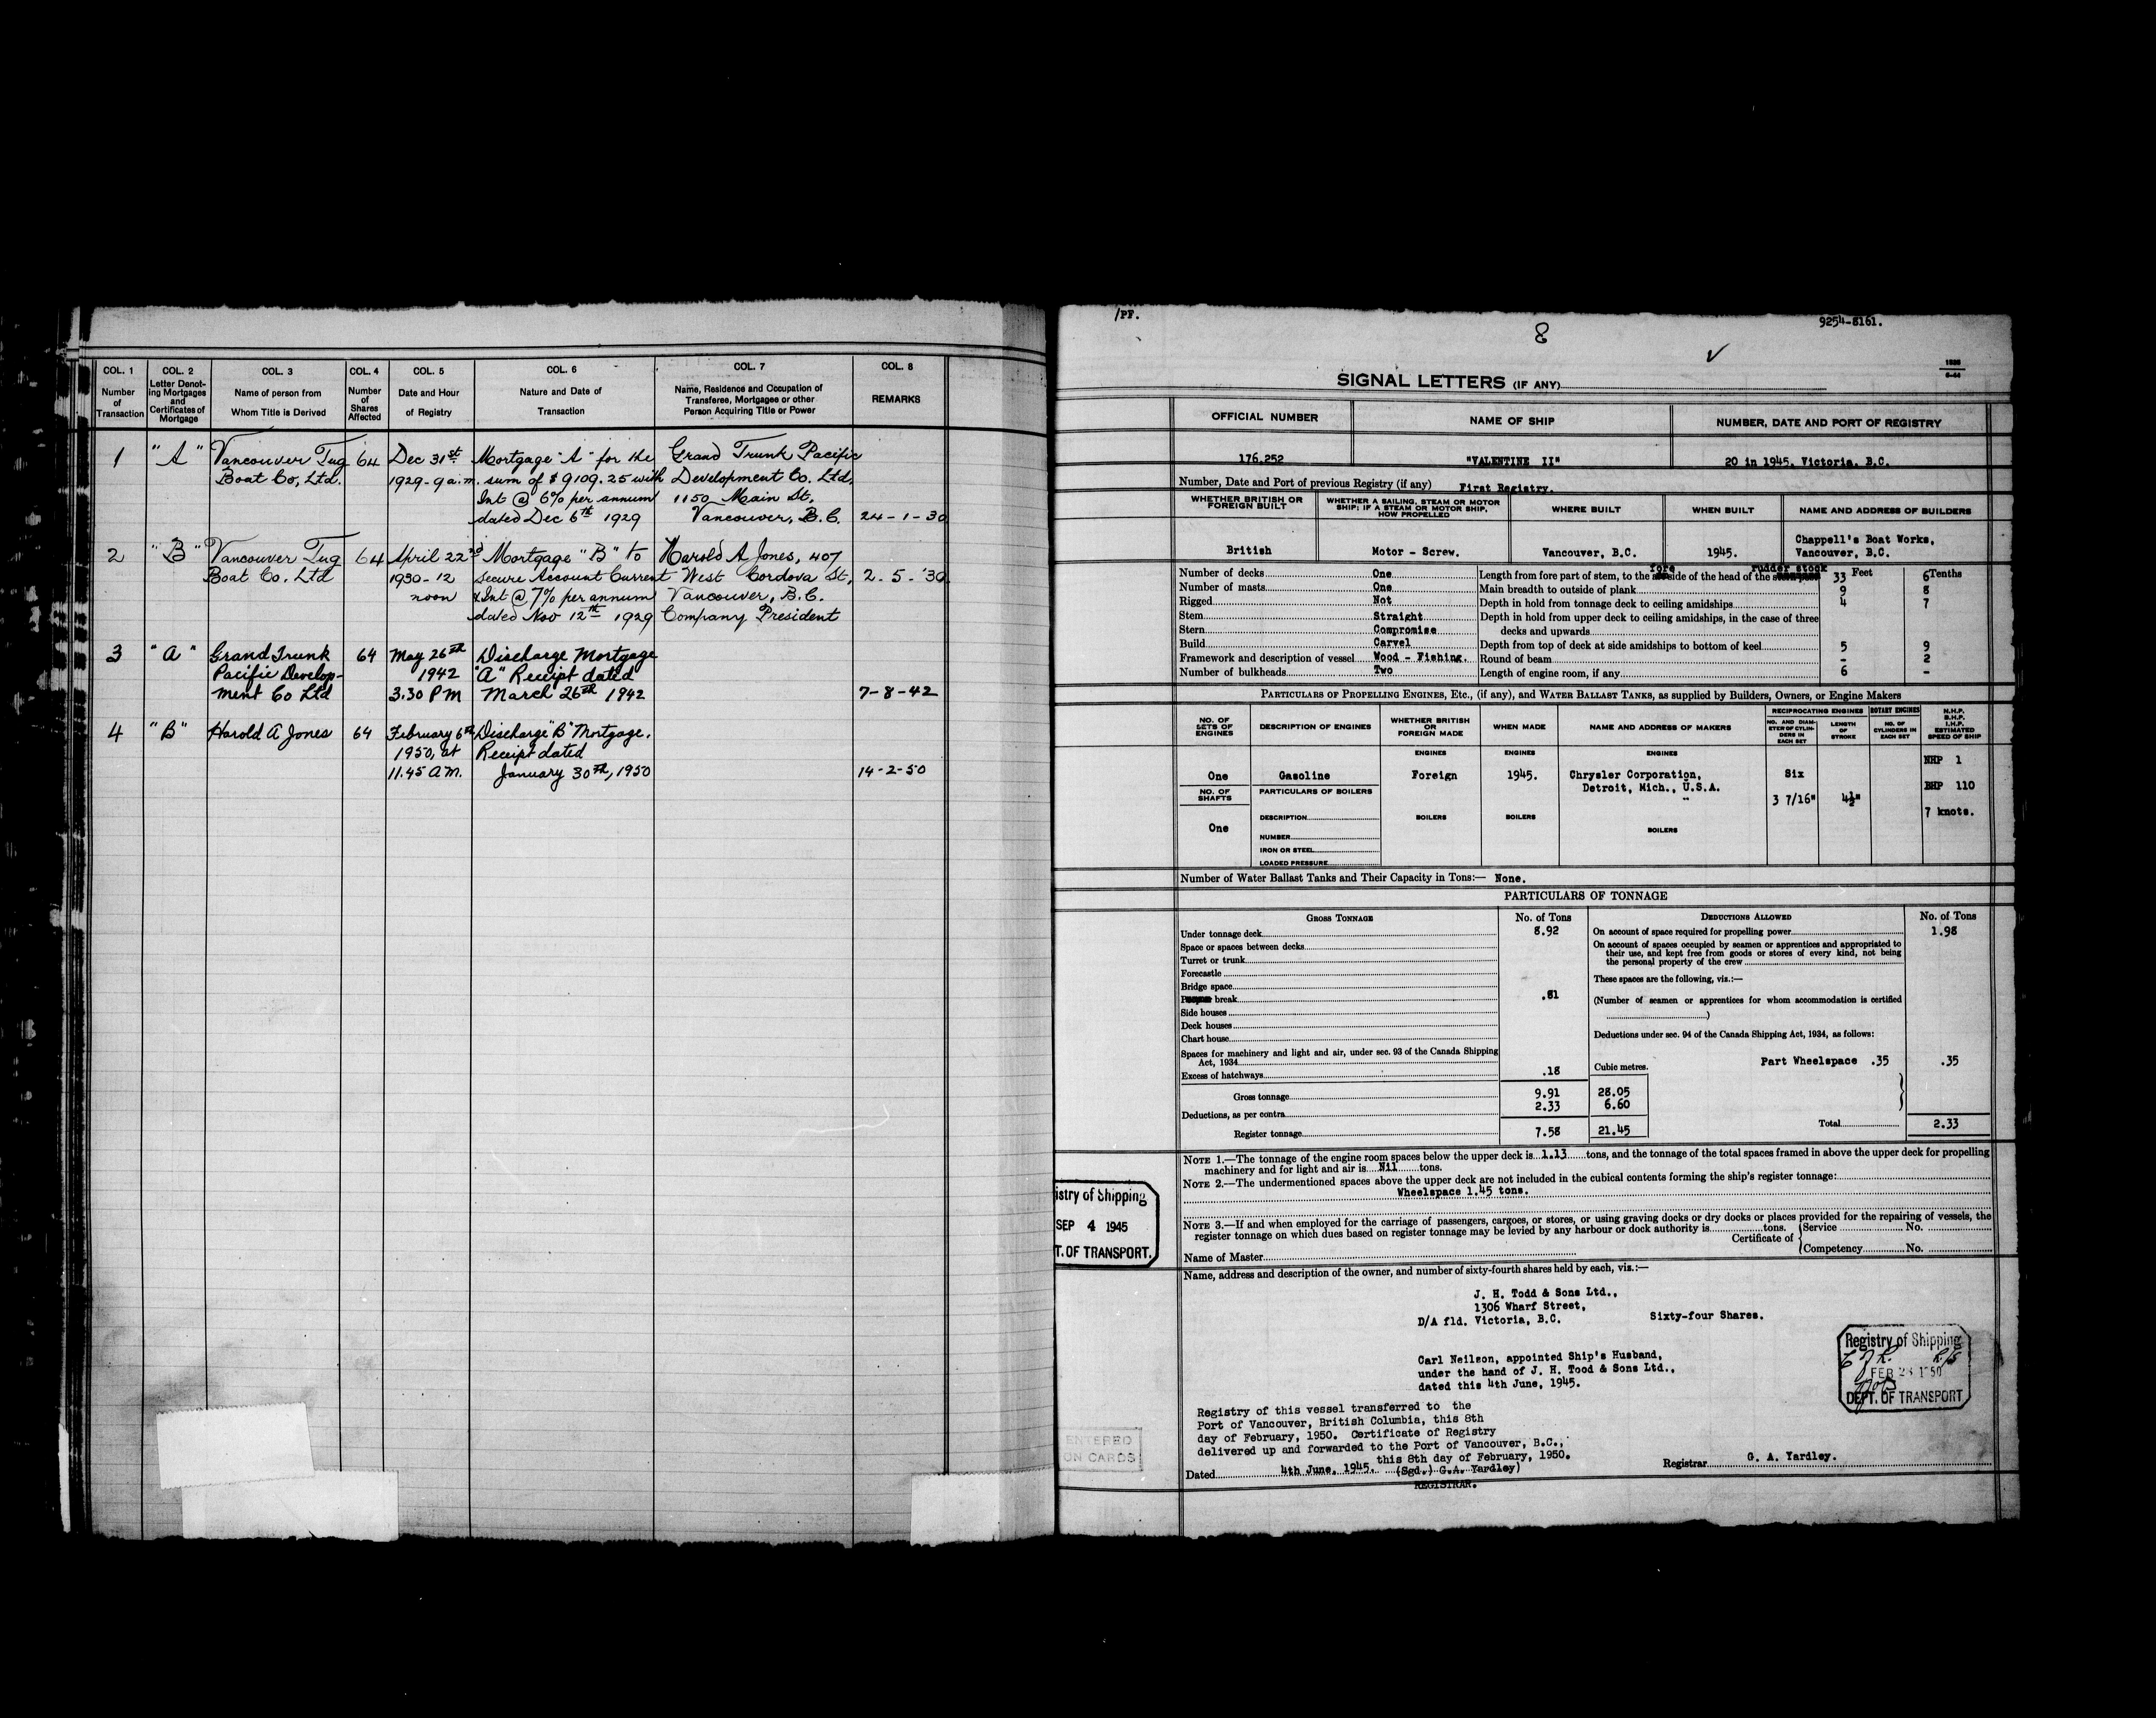 COL. 1 COL. 2 COL. 3 COL. 4 COL. 5 COL. 6 COL. 7 COL. 8
Number of Transaction
Letter Denoting Mortgages and Certificates of Mortgage
Name of person from Whom Title is Derived
Number of Shares Affected
Date and Hour of Registry
Nature and Date of Transaction
Name, Residence and Occupation of Transferee, Mortgagee or other Person Acquiring Title or Power
REMARKS
1 "A" Vancouver Tug 64 Dec 31st Mortgage "A" for the Grand Trunk Pacific
Boat Co, Ltd. 1929-9 a.m. sum of $9109.25 with Development Co. Ltd,
Int @ 6% per annum 1150 Main St,
dated Dec 6th 1929 Vancouver, B.C. 24-1-30
2 "B" Vancouver Tug 64 April 22nd Mortgage "B" to Harold A Jones, 407
Boat Co. Ltd 1930-12 secure Account Current West Cordova St, 2-5-'30
noon & Int @ 7% per annum Vancouver, B.C.
dated Nov 12th 1929 Company President
3 "A" Grand Trunk 64 May 26th Discharge Mortgage
Pacific Develop- 1942 "A" Receipt dated
ment Co Ltd 3.30 PM March 26th 1942 7-8-42
4 "B" Harold A Jones 64 February 6th Discharge "B" Mortgage.
1950, at Receipt dated
11.45 A.M. January 30th, 1950 14-2-50
/PF.
8
9254-8161.
SIGNAL LETTERS (IF ANY)
OFFICIAL NUMBER NAME OF SHIP NUMBER, DATE AND PORT OF REGISTRY
176,252 "VALENTINE II" 20 in 1945. Victoria, B.C.
Number, Date and Port of previous Registry (if any) First Registry.
WHETHER BRITISH OR FOREIGN BUILT
WHETHER A SAILING, STEAM OR MOTOR SHIP; IF A STEAM OR MOTOR SHIP, HOW PROPELLED
WHERE BUILT WHEN BUILT NAME AND ADDRESS OF BUILDERS
British Motor - Screw. Vancouver, B.C. 1945. Chappell's Boat Works,
Vancouver, B.C.
fore rudder stock
Number of decks One Length from fore part of stem, to the side of the head of the 33 Feet 6 Tenths
Number of masts One Main breadth to outside of plank 9 8
Rigged Not Depth in hold from tonnage deck to ceiling amidships 4 7
Stem Straight Depth in hold from upper deck to ceiling amidships, in the case of three
Stern Compromise decks and upwards
Build Carvel Depth from top of deck at side amidships to bottom of keel 5 9
Framework and description of vessel Wood - Fishing. Round of beam - 2
Number of bulkheads Two Length of engine room, if any 6 -
PARTICULARS OF PROPELLING ENGINES, ETC., (if any), and WATER BALLAST TANKS, as supplied by Builders, Owners, or Engine Makers
NO. OF SETS OF ENGINES
DESCRIPTION OF ENGINES
WHETHER BRITISH OR FOREIGN MADE
WHEN MADE
NAME AND ADDRESS OF MAKERS
RECIPROCATING ENGINES ROTARY ENGINES
NO. AND DIAMETER OF CYLINDERS IN EACH SET
LENGTH OF STROKE
NO. OF CYLINDERS IN EACH SET
N.H.P. B.H.P. I.H.P. ESTIMATED SPEED OF SHIP
ENGINES ENGINES ENGINES NHP 1
One Gasoline Foreign 1945. Chrysler Corporation, Six
Detroit, Mich., U.S.A. BHP 110
NO. OF SHAFTS PARTICULARS OF BOILERS 3 7/16" 4½"
7 knots.
One DESCRIPTION BOILERS BOILERS BOILERS
NUMBER
IRON OR STEEL
LOADED PRESSURE
Number of Water Ballast Tanks and Their Capacity in Tons:— None.
PARTICULARS OF TONNAGE
GROSS TONNAGE No. of Tons DEDUCTIONS ALLOWED No. of Tons
Under tonnage deck 8.92 On account of space required for propelling power 1.98
Space or spaces between decks
Turret or trunk
Forecastle
Bridge space
break .81
Side houses
Deck houses
Chart house
Spaces for machinery and light and air, under sec. 93 of the Canada Shipping Act, 1934
Excess of hatchways .18
On account of spaces occupied by seamen or apprentices and appropriated to
their use, and kept free from goods or stores of every kind, not being
the personal property of the crew
These spaces are the following, viz.:—
(Number of seamen or apprentices for whom accommodation is certified
)
Deductions under sec. 94 of the Canada Shipping Act, 1934, as follows:
Part Wheelspace .35 .35
Cubic metres.
Gross tonnage 9.91 28.05
Deductions, as per contra 2.33 6.60
Register tonnage 7.58 21.45 Total 2.33
NOTE 1.—The tonnage of the engine room spaces below the upper deck is 1.13 tons, and the tonnage of the total spaces framed in above the upper deck for propelling
machinery and for light and air is Nil tons.
NOTE 2.—The undermentioned spaces above the upper deck are not included in the cubical contents forming the ship's register tonnage:
Wheelspace 1.45 tons.
NOTE 3.—If and when employed for the carriage of passengers, cargoes, or stores, or using graving docks or dry docks or places provided for the repairing of vessels, the
register tonnage on which dues based on register tonnage may be levied by any harbour or dock authority is tons.
Certificate of Service No.
Competency No.
Name of Master
istry of Shipping
SEP 4 1945
T. OF TRANSPORT.
Name, address and description of the owner, and number of sixty-fourth shares held by each, viz.:—
J. H. Todd & Sons Ltd.,
1306 Wharf Street,
D/A fld. Victoria, B.C. Sixty-four Shares.
Carl Neilson, appointed Ship's Husband,
under the hand of J. H. Tood & Sons Ltd.,
dated this 4th June, 1945.
Registry of Shipping
FEB
DEPT. OF TRANSPORT
Registry of this vessel transferred to the
Port of Vancouver, British Columbia, this 8th
day of February, 1950. Certificate of Registry
delivered up and forwarded to the Port of Vancouver, B.C.,
this 8th day of February, 1950.
ENTERED
ON CARDS
Dated 4th June, 1945. (Sgd.) G.A. Yardley) Registrar G. A. Yardley.
REGISTRAR.